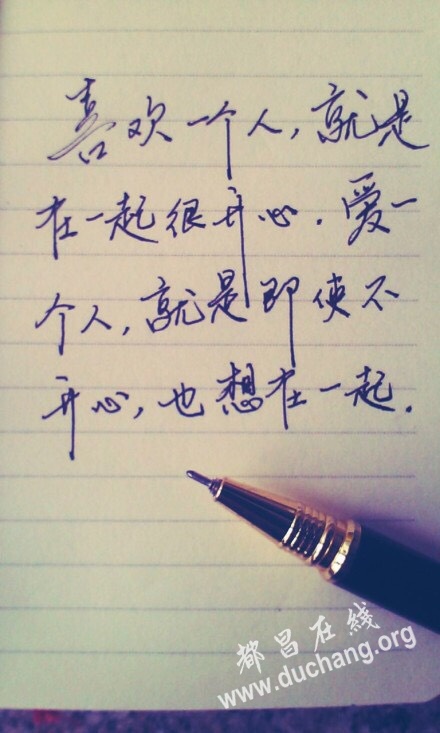 喜欢一个人,就是
在一起很开心.爱一
个人,就是即使不
开心,也想在一起.
都昌在线
www.duchang.org